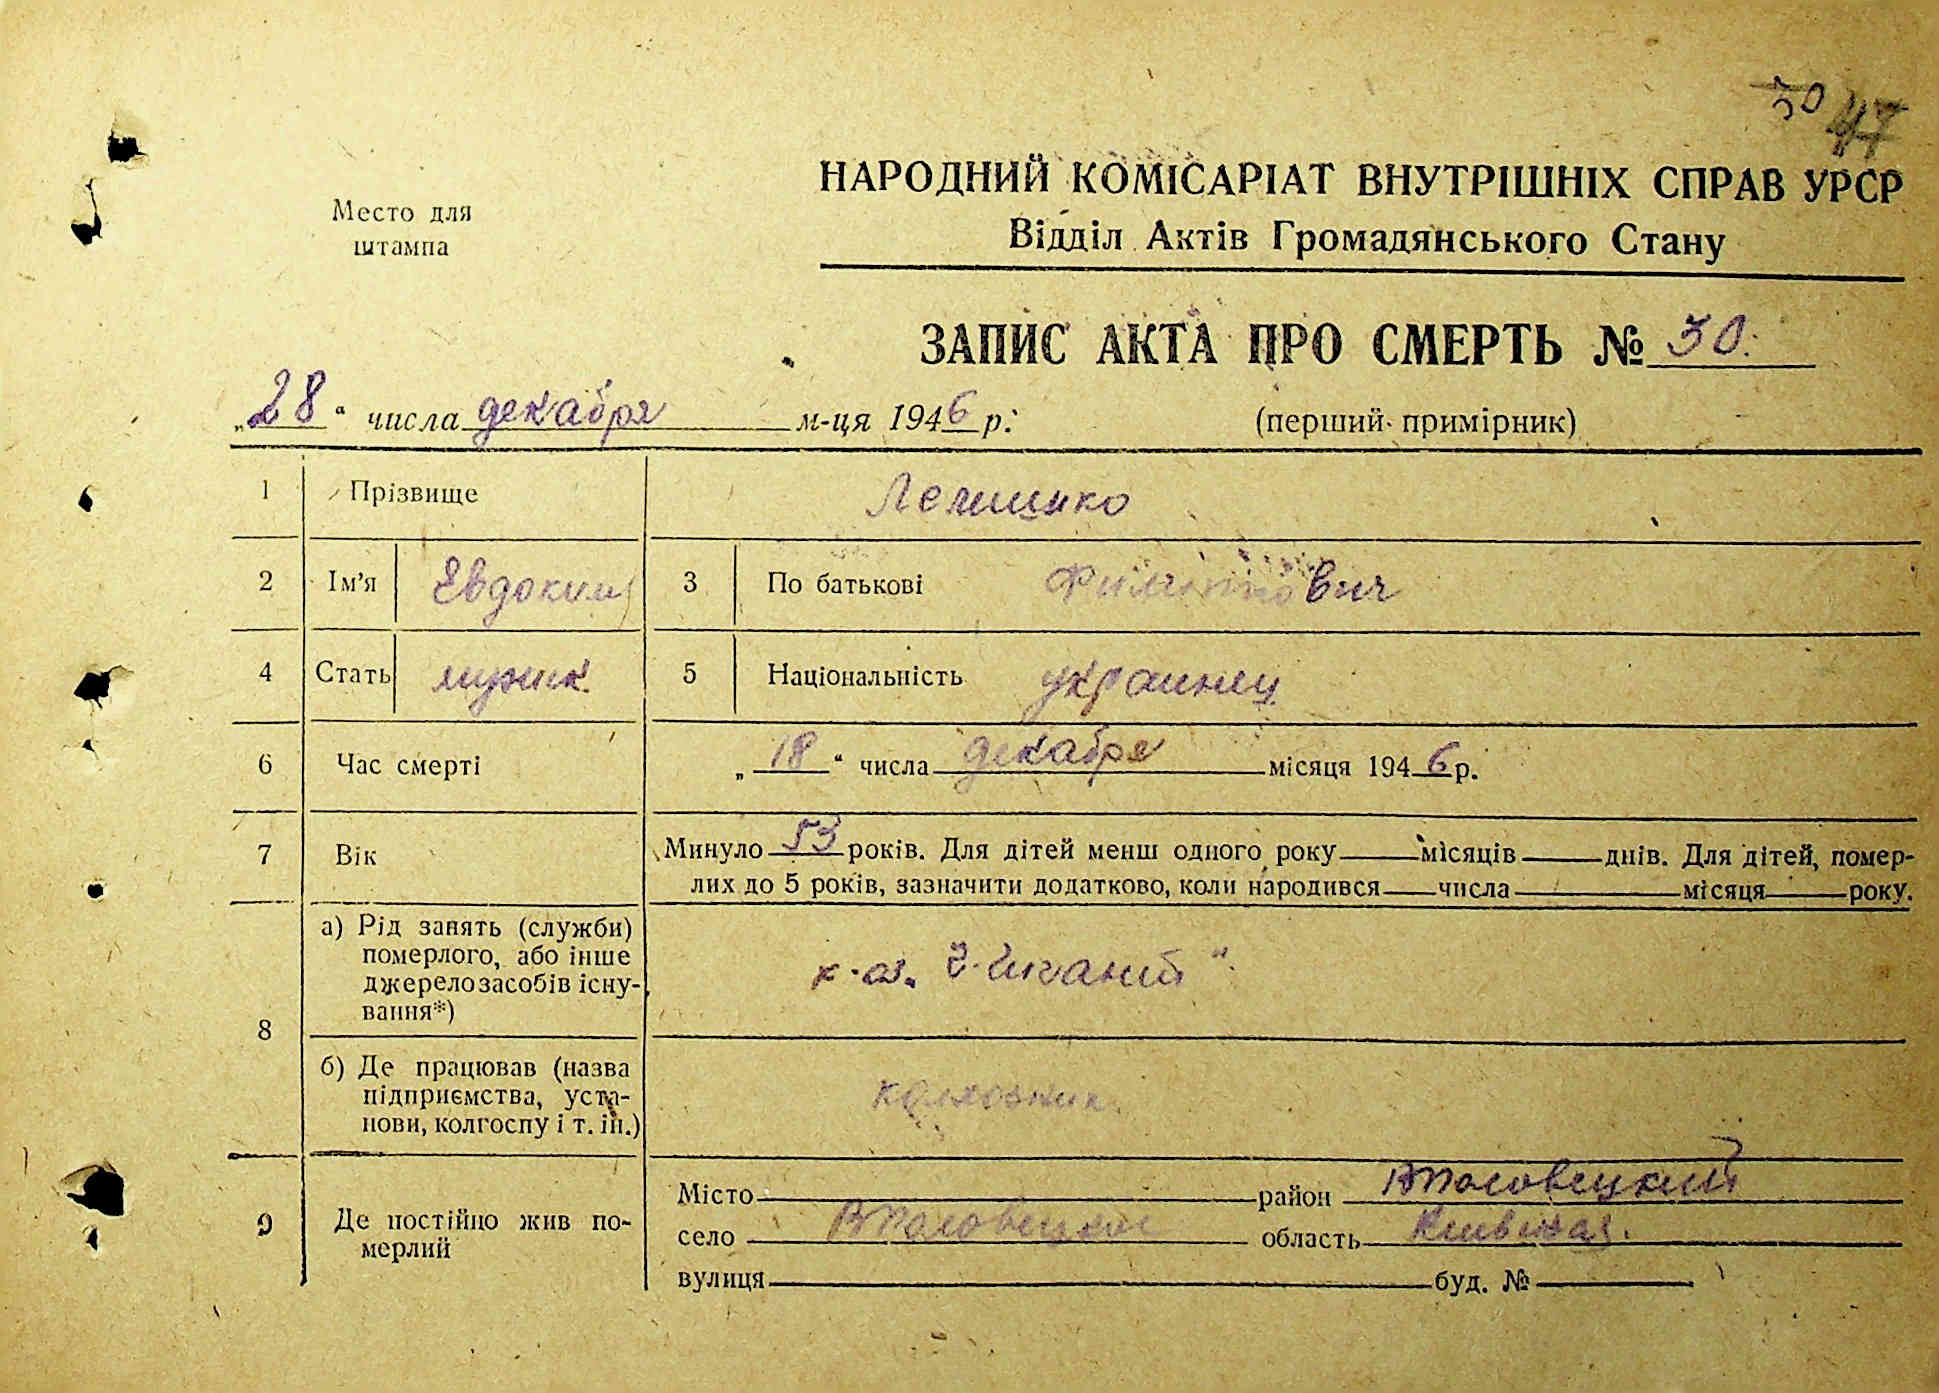 30 47
Место для
штампа
НАРОДНИЙ КОМІСАРІАТ ВНУТРІШНІХ СПРАВ УРСР
Відділ Актів Громадянського Стану
ЗАПИС АКТА ПРО СМЕРТЬ № 30.
„28“ числа декабря м-ця 1946 р.
(перший примірник)
1 Прізвище
2 Ім’я Евдоким 3 По батькові Филиппович
4 Стать мужик. 5 Національність украинец
6 Час смерті „18“ числа декабря місяця 1946 р.
7 Вік Минуло 53 років. Для дітей менш одного року місяців днів. Для дітей, помер-
лих до 5 років, зазначити додатково, коли народився числа місяця року.
8 а) Рід занять (служби)
померлого, або інше
джерело засобів існу-
вання*)
б) Де працював (назва
підприємства, уста-
нови, колгоспу і т. ін.)
колхозник.
9 Де постійно жив по-
мерлий
Місто район ВПоловецкий
село ВПоловецкое область Киевская.
вулиця буд. №